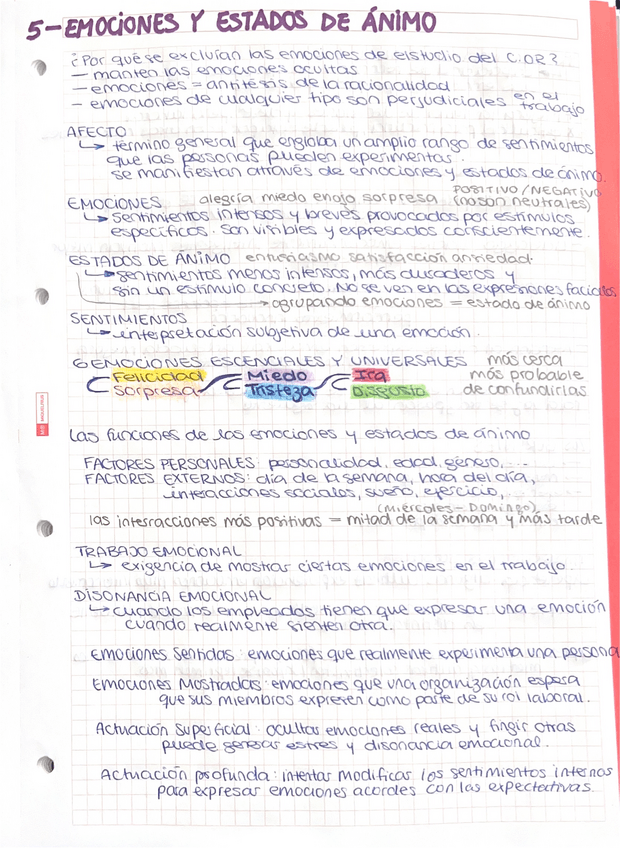 5-EMOCIONES Y ESTADOS DE ÁNIMO
¿Por qué se excluían las emociones de elstudio del C.OR?
— manten las emociones ocultas
— emociones = antítesis de la racionalidad
— emociones de cualquier tipo son perjudiciales en el trabajo
AFECTO
↳ término general que engloba un amplio rango de sentimientos
que las personas pueden experimentar.
se manifiestan através de emociones y estados de ánimo.
EMOCIONES alegría miedo enojo sorpresa POSITIVO/NEGATIVO (no son neutrales)
↳ sentimientos intensos y breves provocados por estímulos
específicos. Son visibles y expresados conscientemente.
ESTADOS DE ÁNIMO entusiasmo satisfacción ansiedad
↳ sentimientos menos intensos, más duraderos y
sin un estímulo concreto. No se ven en las expresiones faciales
→ agrupando emociones = estado de ánimo
SENTIMIENTOS
↳ interpretación subjetiva de una emoción.
6 EMOCIONES ESCENCIALES Y UNIVERSALES más cerca
Felicidad Miedo Ira más probable
Sorpresa Tristeza Disgusto de confundirlas
Las funciones de los emociones y estados de ánimo
FACTORES PERSONALES: personalidad, edad, género,...
FACTORES EXTERNOS: día de la semana, hora del día,
interacciones sociales, sueño, ejercicio,
(Miércoles - Domingo)
las interacciones más positivas = mitad de la semana y más tarde
TRABAJO EMOCIONAL
↳ exigencia de mostrar ciertas emociones en el trabajo.
DISONANCIA EMOCIONAL
↳ cuando los empleados tienen que expresar una emoción
cuando realmente sienten otra.
Emociones Sentidas: emociones que realmente experimenta una persona
Emociones Mostradas: emociones que una organización espera
que sus miembros expresen como parte de su rol laboral.
Actuación Superficial: ocultar emociones reales y fingir otras
puede generar estres y disonancia emocional.
Actuación profunda: intentar modificar los sentimientos internos
para expresar emociones acordes con las expectativas.